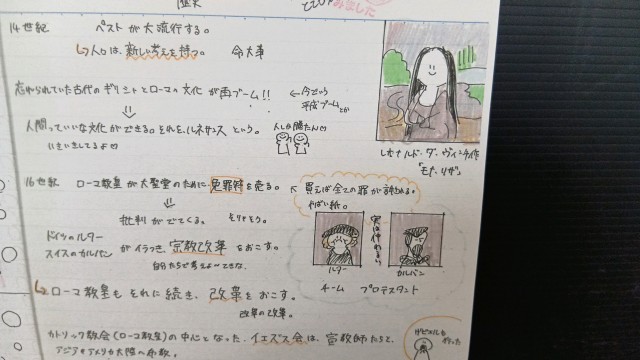 歴史
みました
14世紀 ペストが大流行する。
↳人々は、新しい考えを持つ。 命大事
忘れられていた古代のギリシャとローマの文化が再ブーム!! ←今でいう
平成ブームとか
⇓
人間っていいな文化ができる。それを、ルネサンスという。 人しか勝たん
いきいきしてるよ
レオナルド・ダ・ヴィンチ作
「モナ・リザ」
16世紀 ローマ教皇が大聖堂のために、免罪符を売る。 ↖買えば全ての罪が許される。
やばい紙。
⇓
批判がでてくる。 そりゃそう。
ドイツのルター
スイスのカルバン がイラつき、宗教改革をおこす。
自分たちで考えよーぜ
ルター
カルバン
チーム プロテスタント
↳ローマ教皇もそれに続き、改革をおこす。
改革の改革。
カトリック教会(ローマ教皇)の中心となった、イエズス会は、宣教師たちを、
アジアやアメリカ大陸へ布教。
ザビエルも